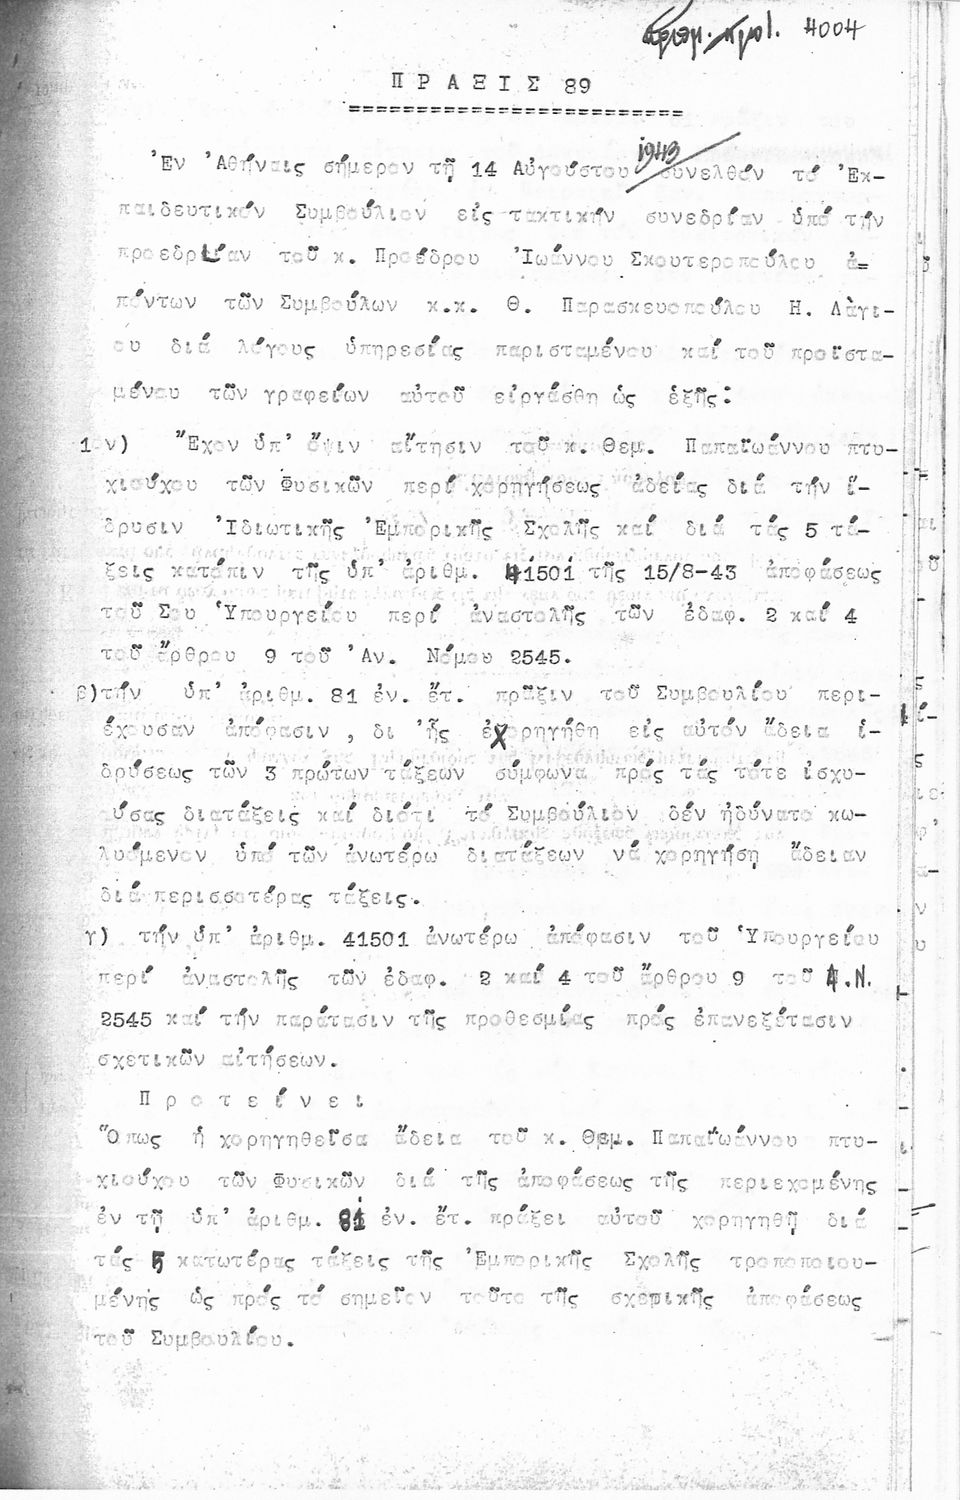 Αριθμ. πρωτ. 4004
ΠΡΑΞΙΣ 89
==========================
Ἐν Ἀθήναις σήμερον τῇ 14 Αὐγούστου 1943 συνελθόν τό Ἐκ-
παιδευτικόν Συμβούλιον εἰς τακτικήν συνεδρίαν ὑπό τήν
προεδρείαν τοῦ κ. Προέδρου Ἰωάννου Σκουτεροπούλου ἀ=
πόντων τῶν Συμβούλων κ.κ. Θ. Παρασκευοπούλου Η. Λάγι-
ου διά λόγους ὑπηρεσίας παρισταμένου καί τοῦ προϊστα-
μένου τῶν γραφείων αὐτοῦ εἰργάσθη ὡς ἑξῆς:
1ον) Ἔχον ὑπ' ὄψιν αἴτησιν τοῦ κ. Θεμ. Παπαϊωάννου πτυ-
χιούχου τῶν Φυσικῶν περί χορηγήσεως ἀδείας διά τήν ἵ-
δρυσιν Ἰδιωτικῆς Ἐμπορικῆς Σχολῆς καί διά τάς 5 τά-
ξεις κατόπιν τῆς ὑπ' ἀριθμ. 41501 τῆς 15/8-43 ἀποφάσεως
τοῦ Σου Ὑπουργείου περί ἀναστολῆς τῶν ἐδαφ. 2 καί 4
τοῦ ἄρθρου 9 τοῦ Ἀν. Νόμου 2545.
β)τήν ὑπ' ἀριθμ. 81 ἐν. ἔτ. πρᾶξιν τοῦ Συμβουλίου περι-
έχουσαν ἀπόφασιν , δι 'ἧς ἐχορηγήθη εἰς αὐτόν ἄδεια ἱ-
δρύσεως τῶν 3 πρώτων τάξεων σύμφωνα πρός τάς τότε ἰσχυ-
ούσας διατάξεις καί διότι τό Συμβούλιον δέν ἠδύνατο κω-
λυόμενον ὑπό τῶν ἀνωτέρω διατάξεων νά χορηγήσῃ ἄδειαν
διά περισσοτέρας τάξεις.
γ) τήν ὑπ' ἀριθμ. 41501 ἀνωτέρω ἀπόφασιν τοῦ Ὑπουργείου
περί ἀναστολῆς τῶν ἐδαφ. 2 καί 4 τοῦ ἄρθρου 9 τοῦ Α.Ν.
2545 καί τήν παράτασιν τῆς προθεσμίας πρός ἐπανεξέτασιν
σχετικῶν αἰτήσεων.
Προτείνει
Ὅπως ἡ χορηγηθεῖσα ἄδεια τοῦ κ. Θεμ. Παπαϊωάννου πτυ-
χιούχου τῶν Φυσικῶν διά τῆς ἀποφάσεως τῆς περιεχομένης
ἐν τῇ ὑπ' ἀριθμ. 81 ἐν. ἔτ. πράξει αὐτοῦ χορηγηθῇ διά
τάς 5 κατωτέρας τάξεις τῆς Ἐμπορικῆς Σχολῆς τροποποιου-
μένης ὡς πρός τό σημεῖον τοῦτο τῆς σχετικῆς ἀποφάσεως
τοῦ Συμβουλίου.